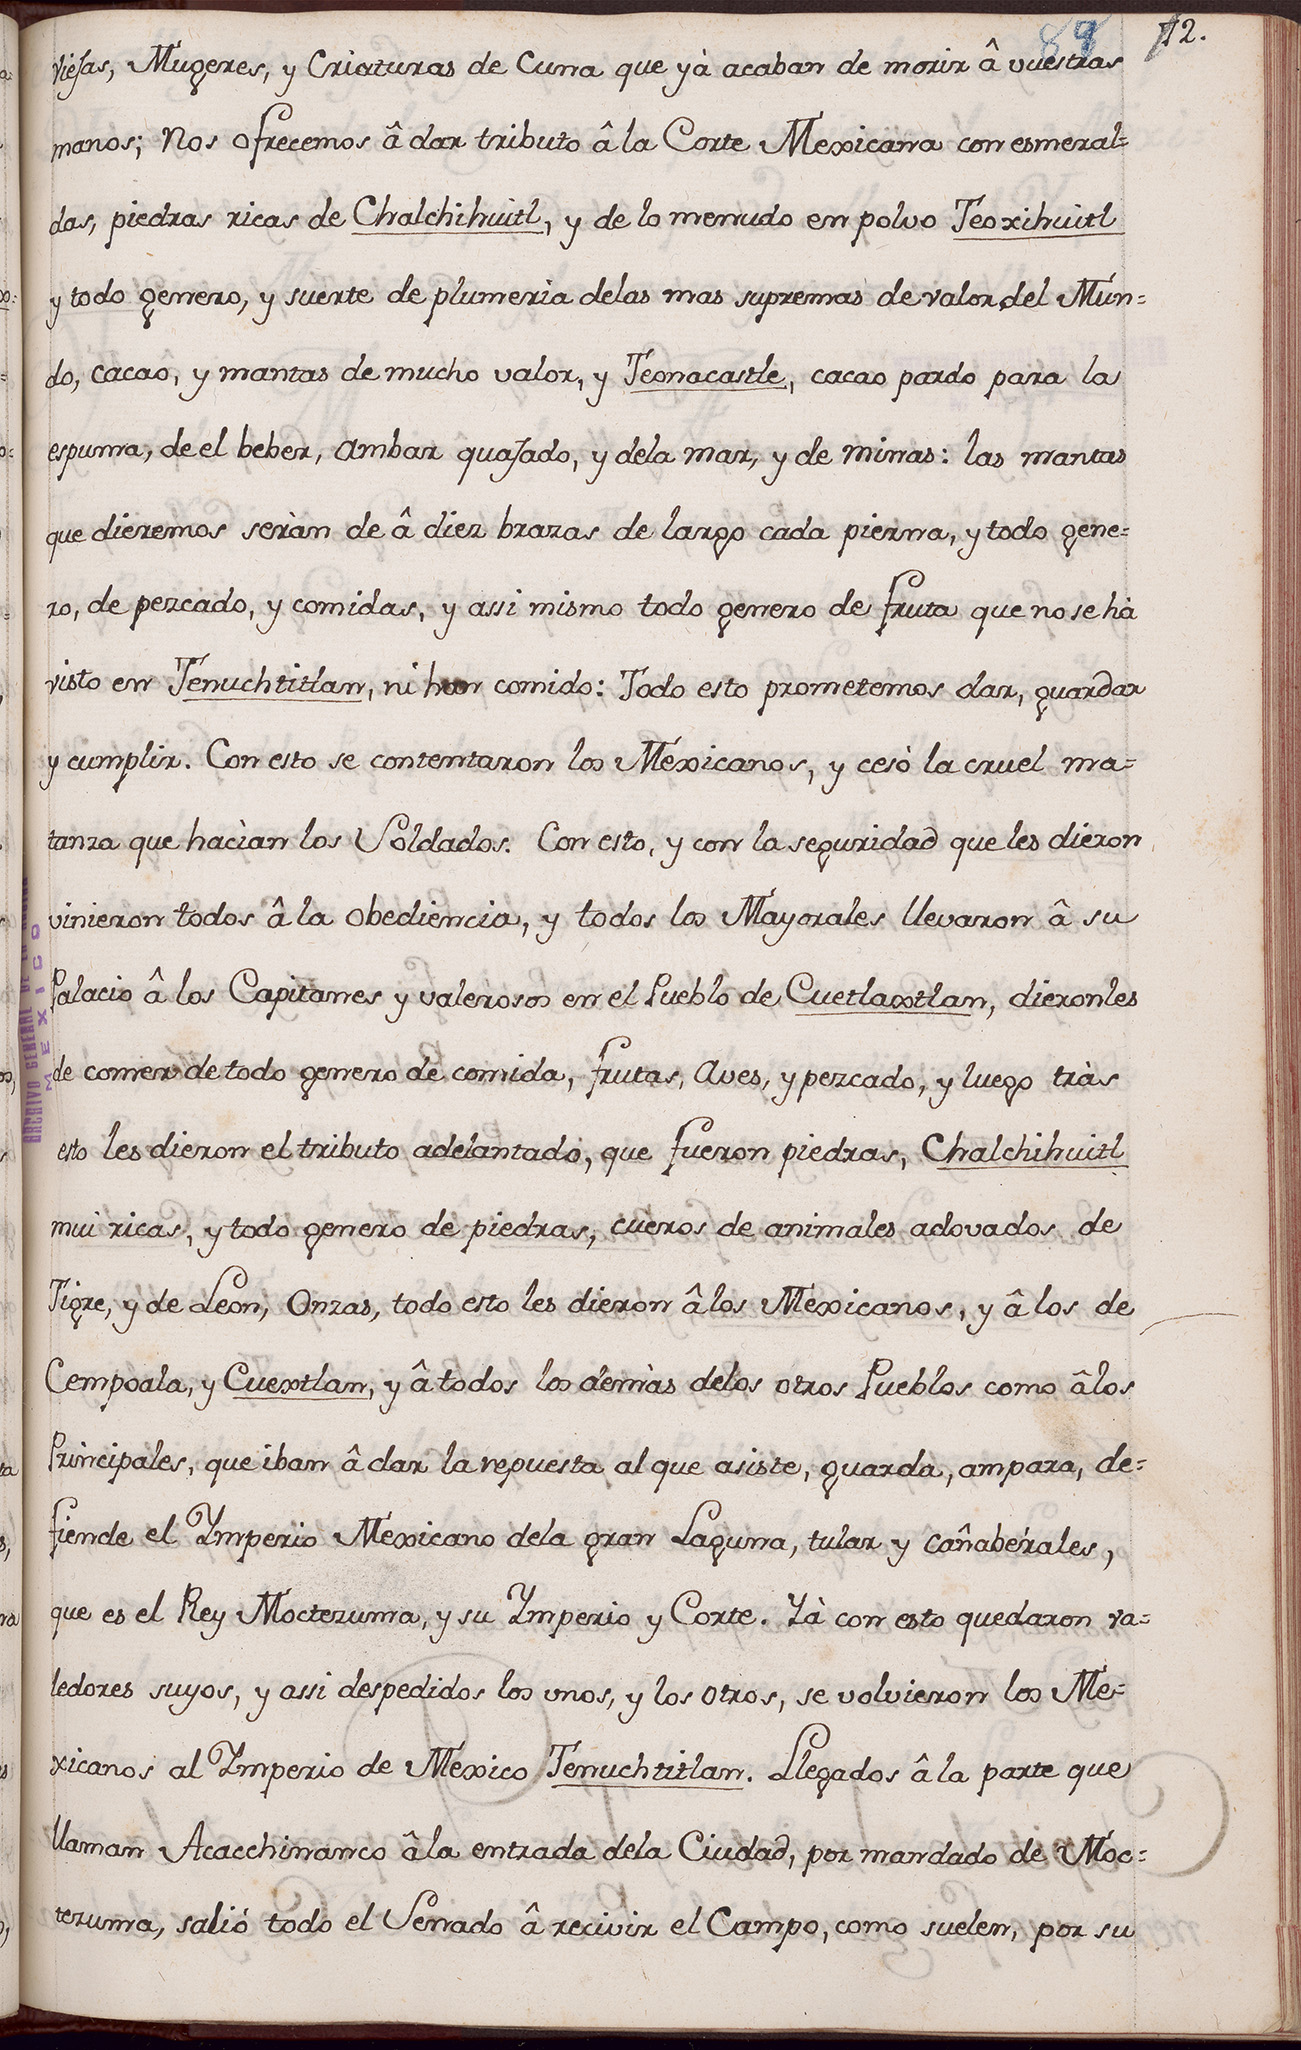 89 112.
viejas, Mugeres, y Criaturas de Cuna que yà acaban de morir â vuestras
manos; Nos ofrecemos â dar tributo â la Corte Mexicana con esmeral=
das, piedras ricas de Chalchihuitl, y de lo menudo en polvo Teoxihuitl
y todo genero, y suerte de plumeria delas mas supremas de valor del Mun=
do, cacaô, y mantas de mucho valor, y Teonacastle, cacao pardo para la
espuma, de el beber, Ambar quajado, y dela mar, y de minas: las mantas
que dieremos seràn de â diez brazas de largo cada pierna, y todo gene=
ro, de pezcado, y comidas, y assi mismo todo genero de fruta que no se hà
visto en Tenuchtitlan, ni han comido: Todo esto prometemos dar, guardar
y cumplir. Con esto se contentaron los Mexicanos, y cesò la cruel ma=
tanza que hacìan los Soldados. Con esto, y con la seguridad que les dieron
vinieron todos â la obediencia, y todos los Mayorales llevaron â su
Palacio â los Capitanes y valerosos en el Pueblo de Cuetlaxtlan, dieronles
de comer de todo genero de comida, frutas, Aves, y pezcado, y luego tràs
esto les dieron el tributo adelantado, que fueron piedras, Chalchihuitl
mui ricas, y todo genero de piedras, cueros de animales adovados de
Tigre, y de Leon, Onzas, todo esto les dieron âlos Mexicanos, y â los de
Cempoala, y Cuextlan, y â todos los demàs delos otros Pueblos como âlos
Principales, que iban â dar la repuesta al que asiste, guarda, ampara, de=
fiende el Ymperio Mexicano dela gran Laguna, tular y cañaberales,
que es el Rey Moctezuma, y su Ymperio y Corte. Yà con esto quedaron va=
ledores suyos, y assi despedidos los unos, y los otros, se volvieron los Me=
xicanos al Ymperio de Mexico Tenuchtitlan. Llegados â la parte que
llaman Acacchinanco âla entrada dela Ciudad, por mandado de Moc=
tezuma, salió todo el Senado â recivir el Campo, como suelen, por su
MEXICO